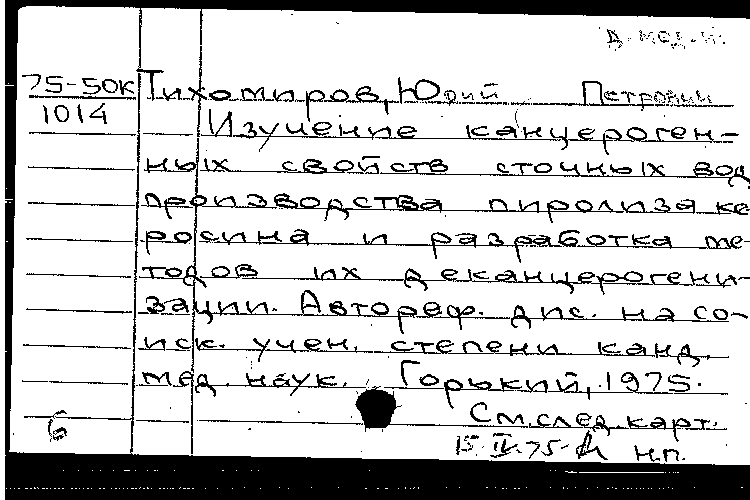 Д-мед.н.
75-50К Тихомиров, Юрий Петрович
1014 Изучение канцероген-
ных свойств сточных вод
производства пиролиза ке-
росина и разработка ме-
тодов их деканцерогени-
зации. Автореф. дис. на со-
иск. учен. степени канд.
мед. наук. Горький, 1975.
См.след.карт.
6 15.IV.75 н.п.